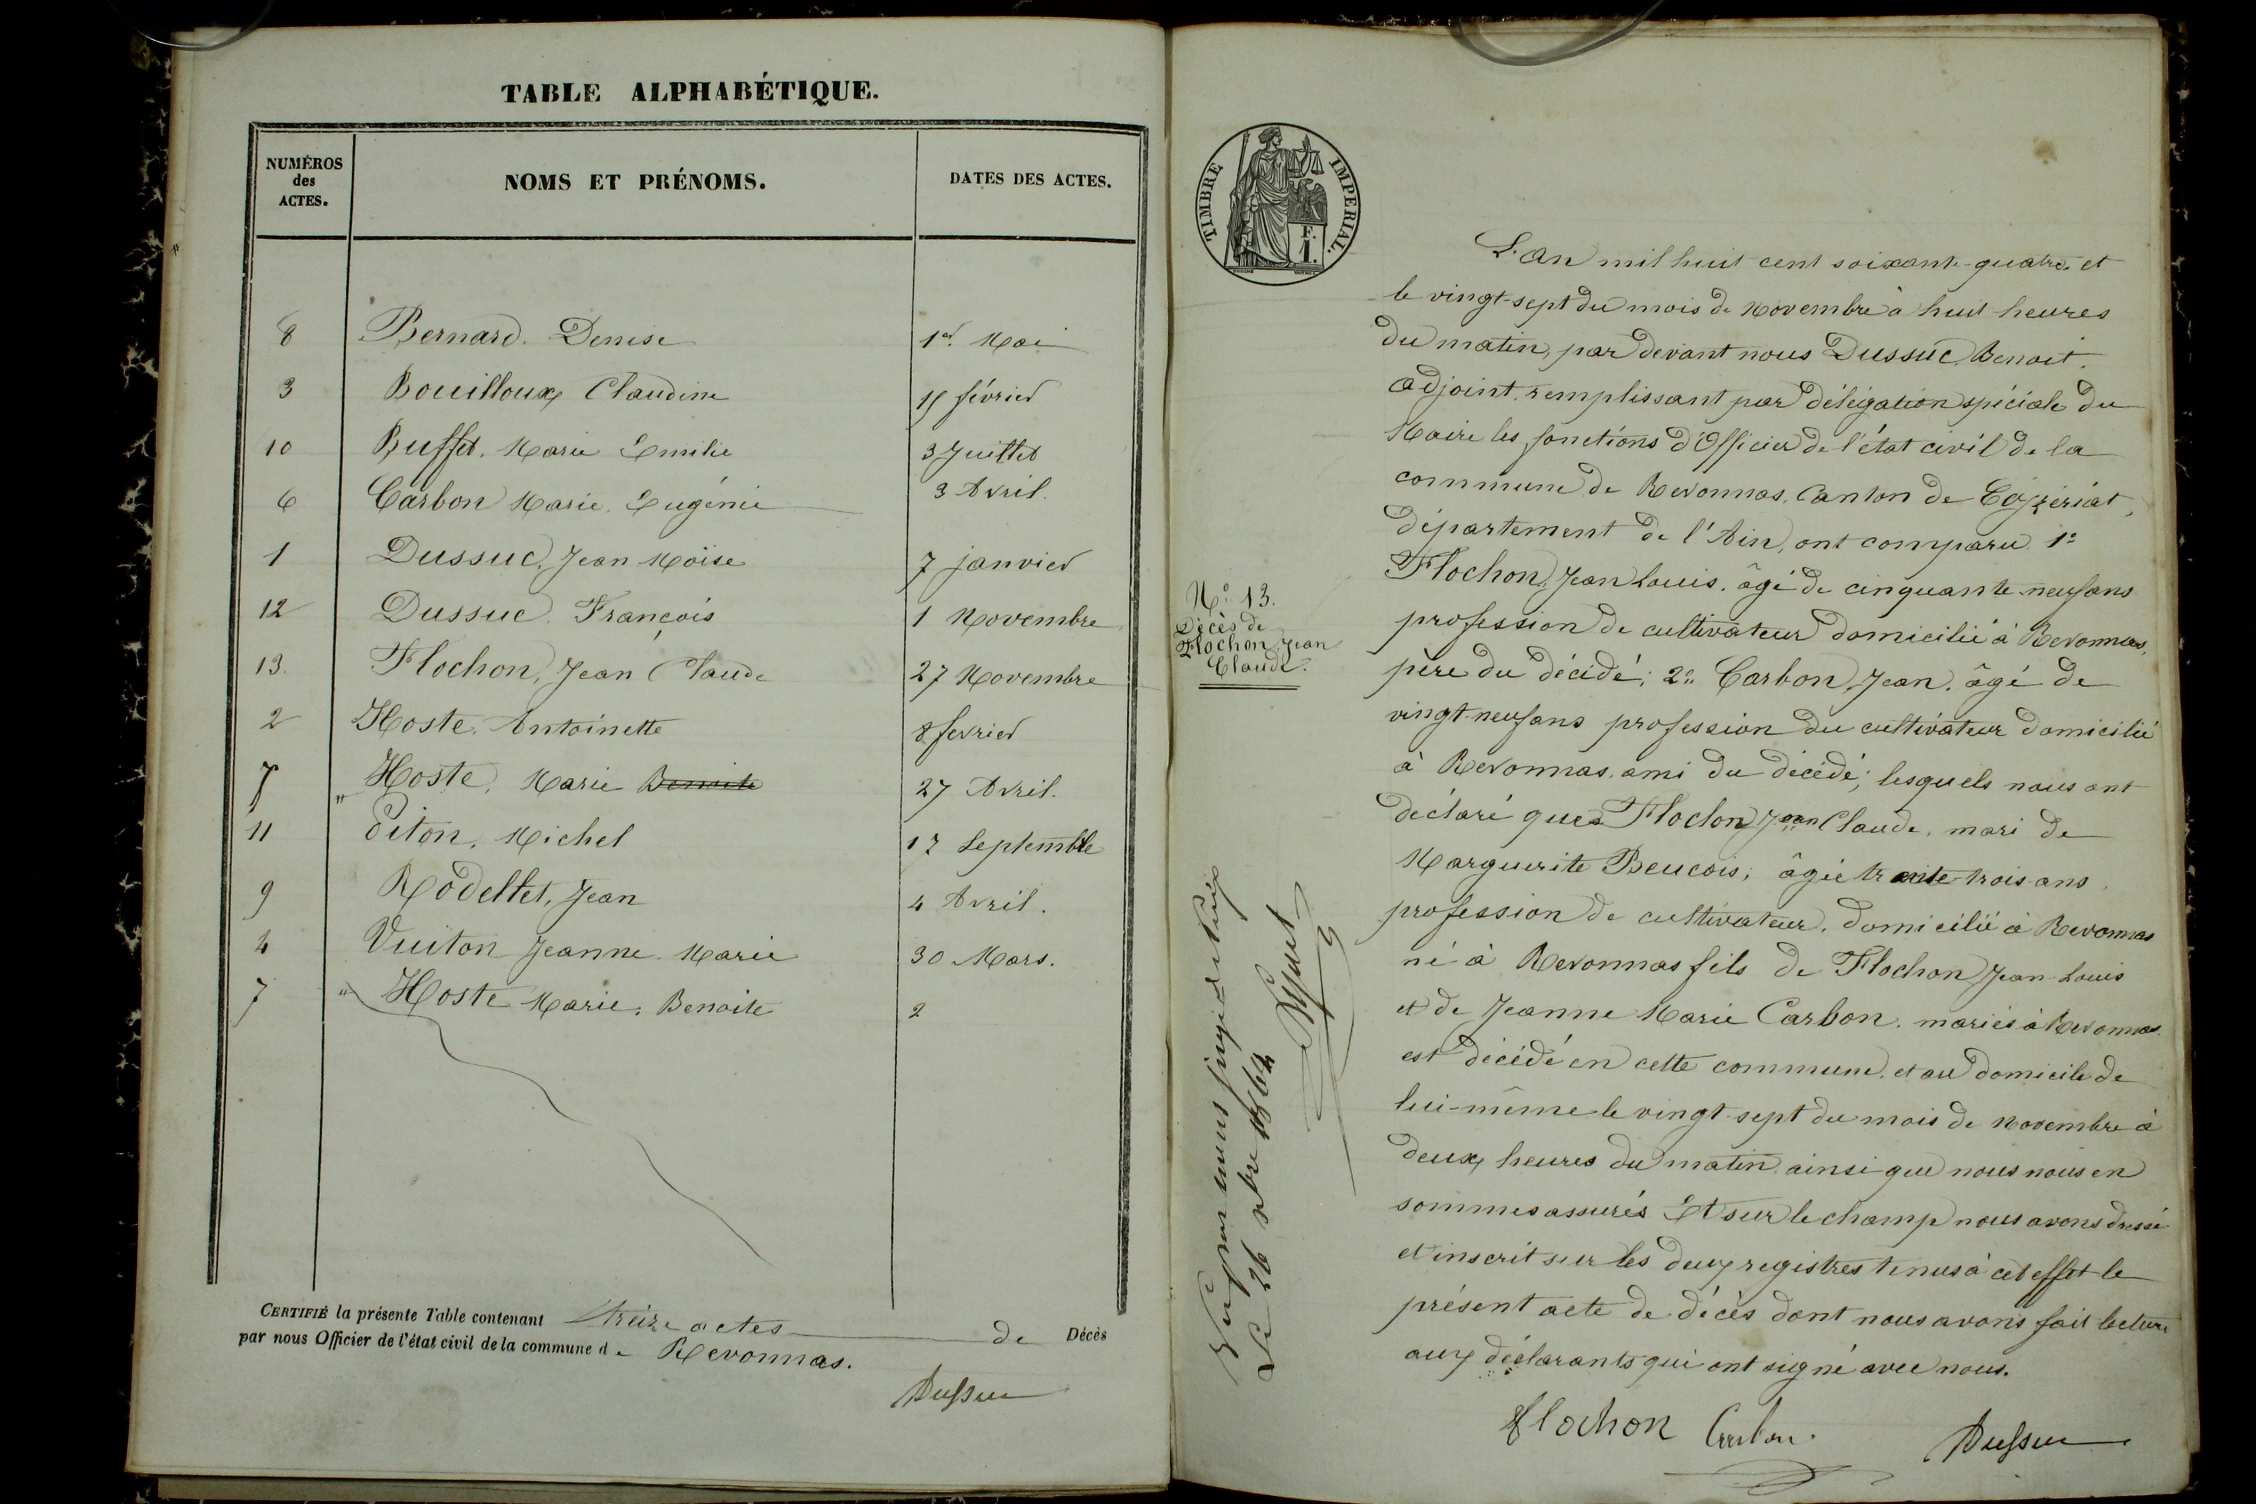 TABLE ALPHABÉTIQUE.
NUMÉROS des ACTES.
NOMS ET PRÉNOMS.
DATES DES ACTES.
8 Bernard. Denise 1er Mai
3 Bouilloux Claudine 15 février
10 Buffet. Marie Emilie 3 Juillet
6 Carbon Marie Eugénie 3 Avril.
1 Dussuc, Jean Moïse 7 janvier
12 Dussuc. François 1 Novembre
13. Flochon, Jean Claude 27 Novembre
2 Hoste. Antoinette 8 fevrier
Hoste, Marie Benoite 27 Avril.
11 Piton, Michel 12 Septembre
9 Rodellet, Jean 4 Avril.
4 Vuiton Jeanne Marie 30 Mars.
7 " Hoste Marie, Benoite 2
CERTIFIÉ la présente Table contenant treize actes de Décès
par nous Officier de l'état civil de la commune de Revonnas.
Dussuc
TIMBRE IMPERIAL.
F.
1.
L'an mil huit cent soixante-quatre. et
le vingt-sept du mois de Novembre à huit heures
du matin, par devant nous Dussuc Benoit.
adjoint remplissant par délégation spéciale du
Maire les fonctions d'Officier de l'état civil de la
commune de Revonnas. Canton de Ceyzériat,
département de l'Ain, ont comparu 1°
Flochon, Jean Louis. âgé de cinquante-neuf ans
profession de cultivateur domicilié à Revonnas.
père du décédé; 2° Carbon, Jean. âgé de
vingt-neuf ans profession du cultivateur domicilié
à Revonnas. ami du décédé; lesquels nous ont
déclaré que Flochon Jean Claude. mari de
Marguerite Beucois; âgée trente-trois ans.
profession de cultivateur. domicilié à Revonnas
né à Revonnas fils de Flochon Jean-Louis
et de Jeanne Marie Carbon. mariés à Revonnas
est décédé en cette commune. et au domicile de
lui-même le vingt-sept du mois de Novembre à
deux heures du matin ainsi que nous nous en
sommes assurés Et sur le champ nous avons dressé
et inscrit sur les deux registres tenus à cet effet le
présent acte de décès dont nous avons fait lecture
aux déclarants qui ont signé avec nous.
Flochon Carbon. Dussuc
N° 13.
Décès de
Flochon Jean
Claude.
Vu par nous juge de Paix
Le 26 xbre 1864